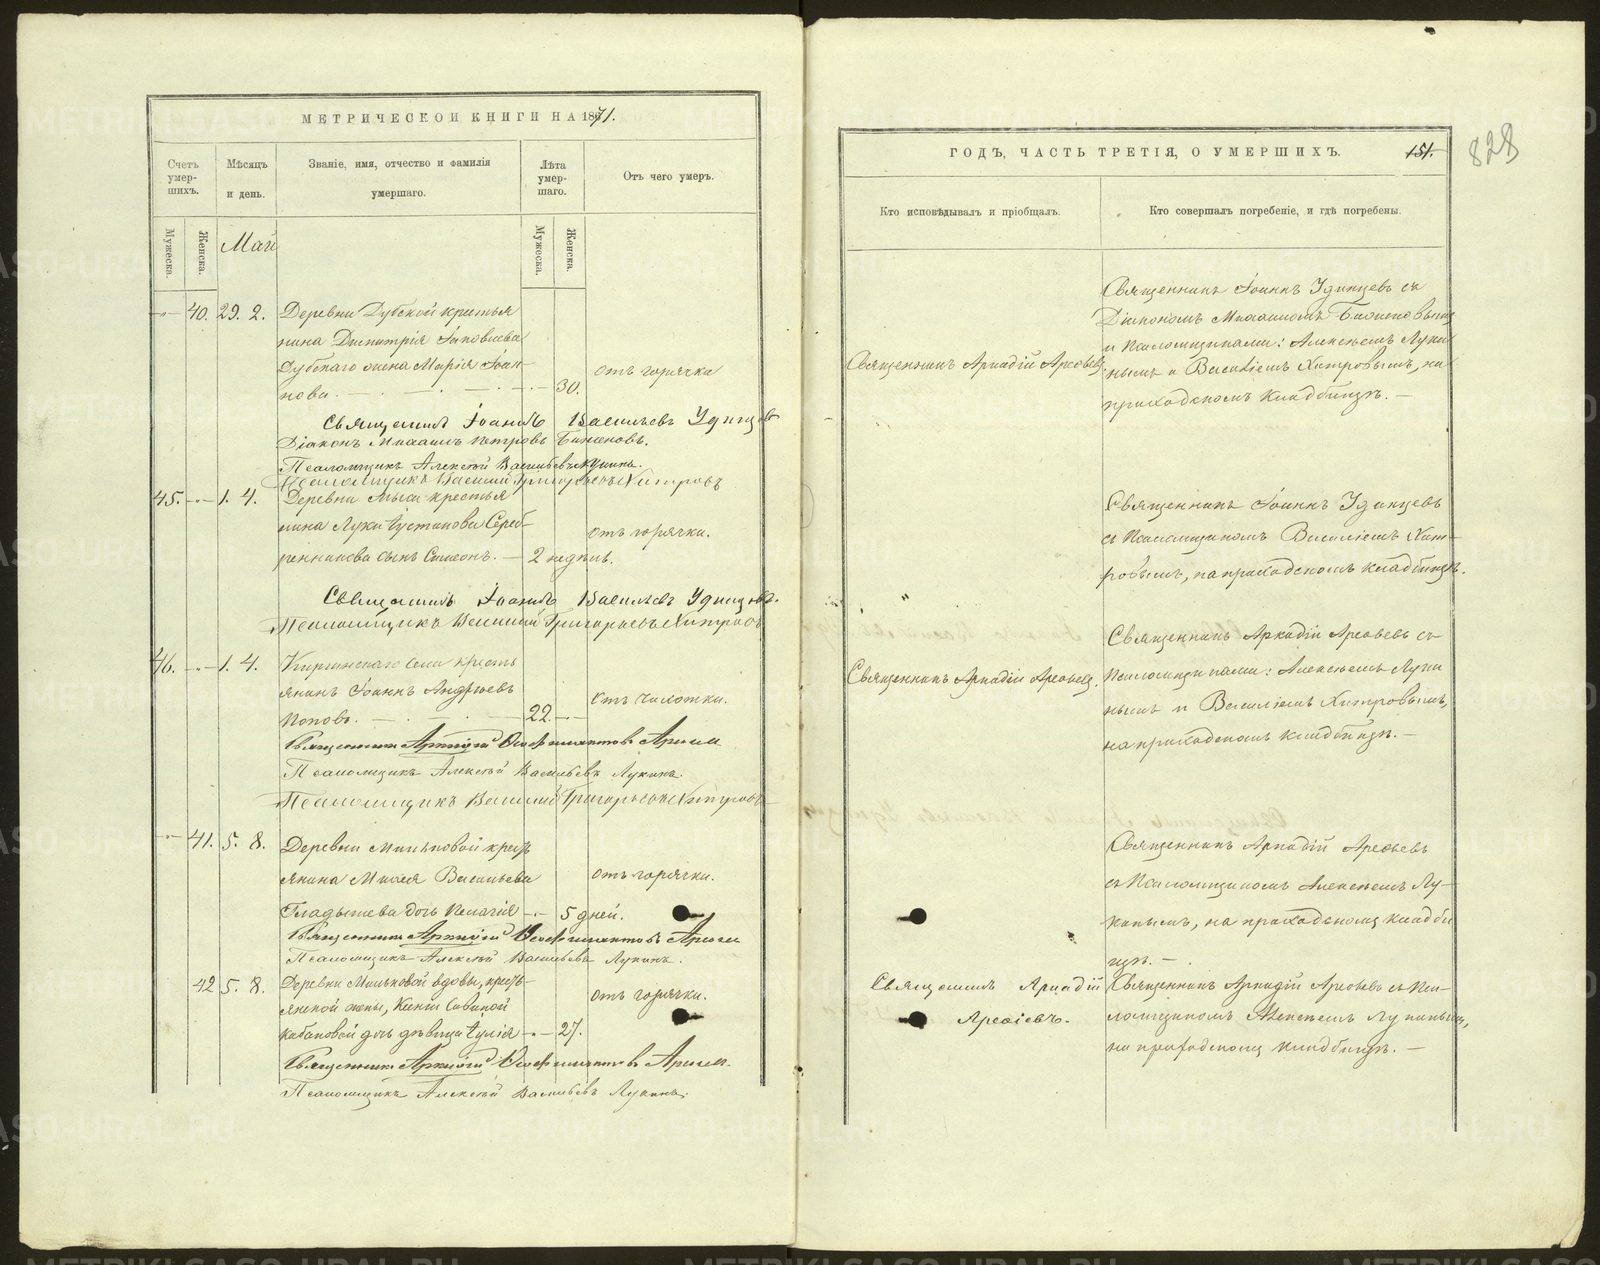 МЕТРИЧЕСКОЙ КНИГИ НА 1871.
Счетъ умер-шихъ.
Мѣсяцъ и день.
Званіе, имя, отчество и фамилія умершаго.
Лѣта умер-шаго.
Отъ чего умеръ.
Мужеска.
Женска.
Май
Мужеска.
Женска.
40. 29. 2. Деревни Дубской крестья
нина Димитрія Іаковлева
Дубскаго жена Марія Іоан-
нова. 30. отъ горячки
Священникъ Іоаннъ Васильевъ Удинцовъ
Діаконъ Михаилъ Петровъ
Псаломщикъ Алексѣй Васильевъ Лукинъ.
Псаломщикъ Василій Григорьевъ Хитровъ
45. 1. 4. Деревни Мыса крестья
нина Луки Іустинова Сереб-
ренникова сынъ Симеонъ. 2 недѣль. отъ горячки.
Священникъ Іоаннъ Васильевъ Удинцовъ.
Псаломщикъ Василий Григорьевъ Хитровъ
46. 1. 4. Киргинскаго села кресть
янинъ Іоаннъ Андреевъ
Поповъ. 22. отъ чахотки.
Священникъ Аркадій
Псаломщикъ Алексѣй Васильевъ Лукинъ.
Псаломщикъ Василий Григорьевъ Хитровъ
41. 5. 8. Деревни Мильковой крестъ
янина Михея Васильева
Гладышева дочь Пелагія 5 дней. отъ горячки.
Священникъ Аркадій
Псаломщикъ Алексѣй Васильевъ Лукинъ.
42 5. 8. Деревни Мильковой вдовы, кресть-
янской жены, Савиной
Кабановой дочь дѣвица Іулія 27. отъ горячки.
Священникъ Аркадій
Псаломщикъ Алексѣй Васильевъ Лукинъ.
ГОДЪ, ЧАСТЬ ТРЕТІЯ, О УМЕРШИХЪ.
151.
828
Кто исповѣдывалъ и пріобщалъ.
Кто совершалъ погребеніе, и гдѣ погребены.
Священникъ Іоаннъ Удинцевъ съ
Діакономъ Михаиломъ
и Псаломщиками: Алексѣемъ Луки
нымъ и Василіемъ Хитровымъ, на
приходскомъ кладбищѣ.
Священникъ Аркадій Арефьевъ
Священникъ Іоаннъ Удинцевъ
съ Псаломщикомъ Василіемъ Хит-
ровымъ, на приходскомъ кладбищѣ.
Священникъ Аркадій Арефьевъ.
Священникъ Аркадій Арефьевъ съ
Псаломщиками: Алексѣемъ Луки
нымъ и Василіемъ Хитровымъ,
на приходскомъ кладбищѣ.
Священникъ Аркадій Арефьевъ
съ Псаломщикомъ Алексѣемъ Лу-
кинымъ, на приходскомъ кладби
щѣ.
Священникъ Аркадій
Арефіевъ.
Священникъ Аркадій Арефьевъ съ Пса-
ломщикомъ Алексѣемъ Лукинымъ,
на приходскомъ кладбищѣ.
METRIKI.GASO-URAL.RU